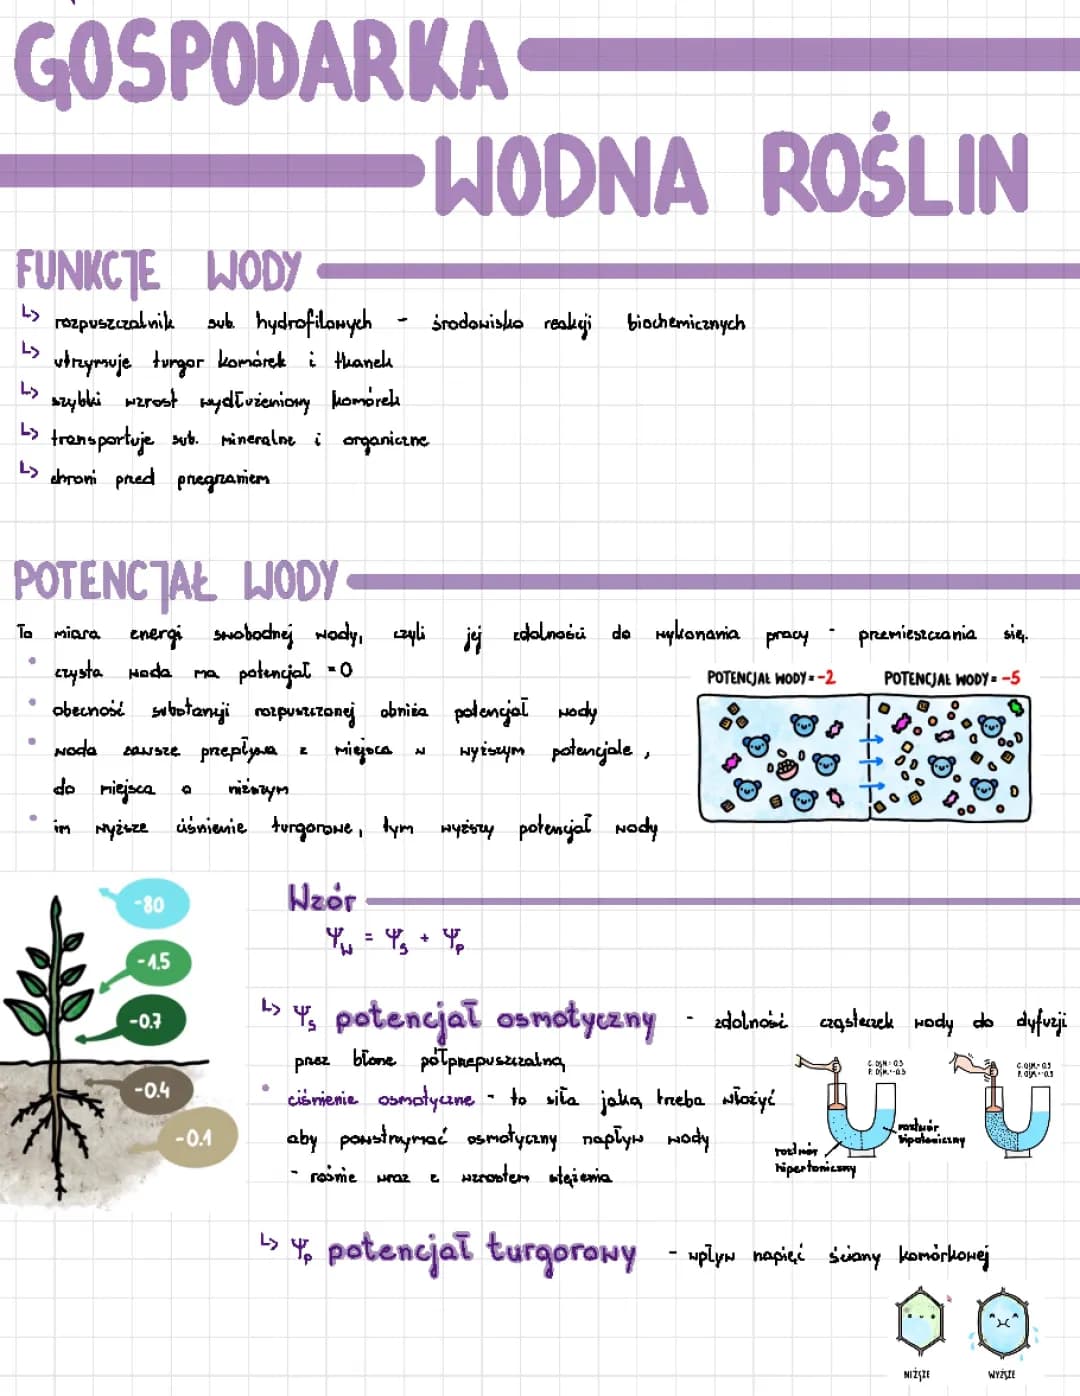 GOSPODARKA
WODNA ROŚLIN
FUNKCJE WODY
↳ rozpuszczalnik sub. hydrofilowych - środowisko reakcji biochemicznych
↳ utrzymuje turgor komórek i tkanek
↳ szybki wzrost wydłużeniowy komórek
↳ transportuje sub. mineralne i organiczne
↳ chroni przed przegrzaniem
POTENCJAŁ WODY
To miara energi swobodnej wody, czyli jej zdolności do wykonania pracy - przemieszczania się.
• czysta woda ma potencjał = 0
• obecność substancji rozpuszczonej obniża potencjał wody
• woda zawsze przepływa z miejsca w wyższym potencjale,
do miejsca o niższym
• im wyższe ciśnienie turgorowe, tym wyższy potencjał wody
POTENCJAŁ WODY = -2
POTENCJAŁ WODY = -5
-80
-1.5
-0.7
-0.4
-0.1
Wzór
Ψw = Ψs + Ψp
↳ Ψs potencjał osmotyczny - zdolność cząsteczek wody do dyfuzji
przez błonę półprzepuszczalną
• ciśnienie osmotyczne - to siła jaką trzeba włożyć
aby powstrzymać osmotyczny napływ wody
- rośnie wraz z wzrostem stężenia
roztwór
hipertoniczny
roztwór
hipotoniczny
↳ Ψp potencjał turgorowy - wpływ napięć ściany komórkowej
NIŻSZE
WYŻSZE